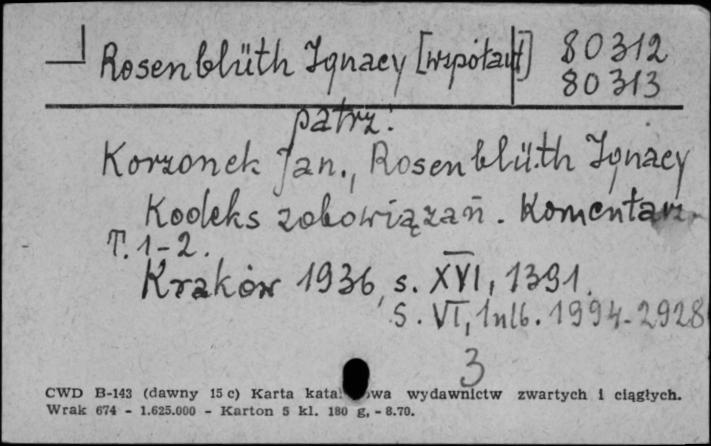 Rosenblüth Ignacy [współaut] 80312
80313
patrz:
Korzonek Jan., Rosenblüth Ignacy
Kodeks zobowiązań. Komentarz.
T. 1-2.
Kraków 1936, s. XVI, 1391.
S. VI, 1nlb. 1994-2928
3
CWD B-143 (dawny 15 c) Karta kata owa wydawnictw zwartych i ciągłych.
Wrak 674 - 1.625.000 - Karton 5 kl. 180 g, - 8.70.